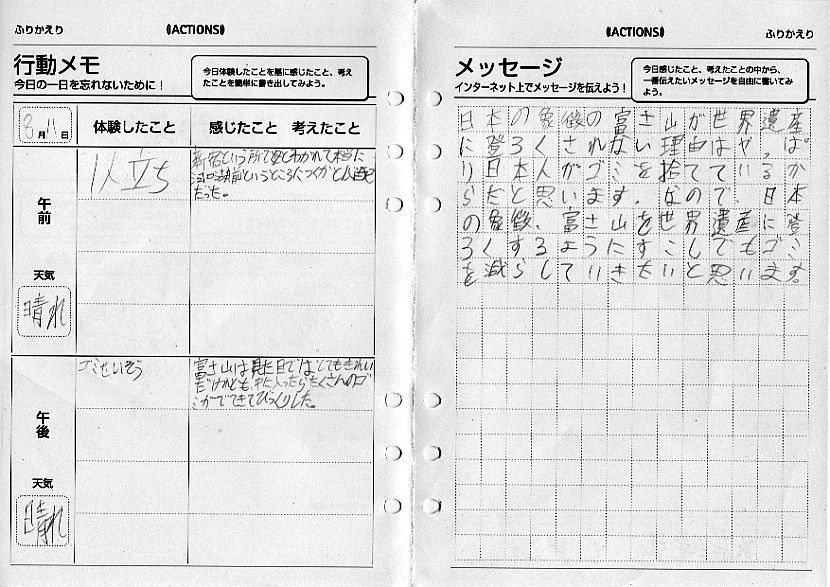 ふりかえり
《ACTIONS》
行動メモ
今日の一日を忘れないために！
今日体験したことを基に感じたこと、考え
たことを簡単に書き出してみよう。
8月11日
体験したこと
感じたこと 考えたこと
午前
天気
晴れ
1人立ち
新宿という所で
だった。
午後
天気
晴れ
ゴミせいそう
富士山は見た目ではとてもきれい
だけれども、中に入ったらたくさんのゴ
ミがでてきてびっくりした。
《ACTIONS》
ふりかえり
メッセージ
インターネット上でメッセージを伝えよう！
今日感じたこと、考えたことの中から、
一番伝えたいメッセージを自由に書いてみ
よう。
日本の象徴の富士山が世界遺産
に登ろくされない理由はやっぱ
り日本人がゴミを捨てているか
らだと思います。なので、日本
の象徴、富士山を世界遺産に登
ろくするようにすこしでもゴミ
を減らしていきたいと思います。